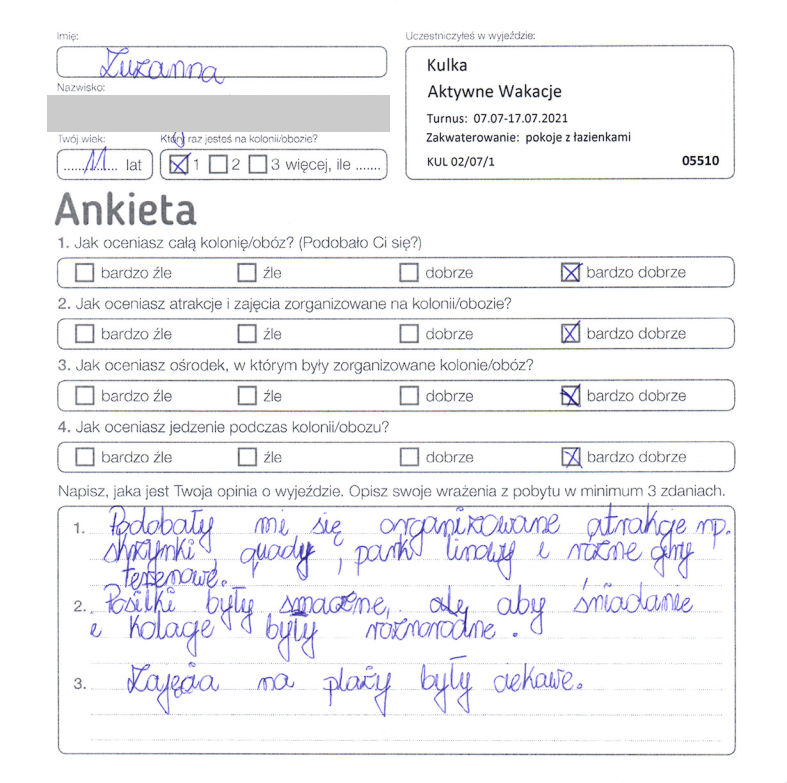 Imię:
Zuzanna
Nazwisko:
Twój wiek:
11 lat
Który raz jesteś na kolonii/obozie?
1 2 3 więcej, ile .......
Uczestniczyłeś w wyjeździe:
Kulka
Aktywne Wakacje
Turnus: 07.07-17.07.2021
Zakwaterowanie: pokoje z łazienkami
KUL 02/07/1 05510
Ankieta
1. Jak oceniasz całą kolonię/obóz? (Podobało Ci się?)
bardzo źle źle dobrze bardzo dobrze
2. Jak oceniasz atrakcje i zajęcia zorganizowane na kolonii/obozie?
bardzo źle źle dobrze bardzo dobrze
3. Jak oceniasz ośrodek, w którym były zorganizowane kolonie/obóz?
bardzo źle źle dobrze bardzo dobrze
4. Jak oceniasz jedzenie podczas kolonii/obozu?
bardzo źle źle dobrze bardzo dobrze
Napisz, jaka jest Twoja opinia o wyjeździe. Opisz swoje wrażenia z pobytu w minimum 3 zdaniach.
1. Podobały mi się organizowane atrakcje np.
skrzynki quady, park linowy i różne gry
terenowe.
2. Posiłki były smaczne, ale aby śniadanie
i kolacje były różnorodne.
3. Zajęcia na plaży były ciekawe.